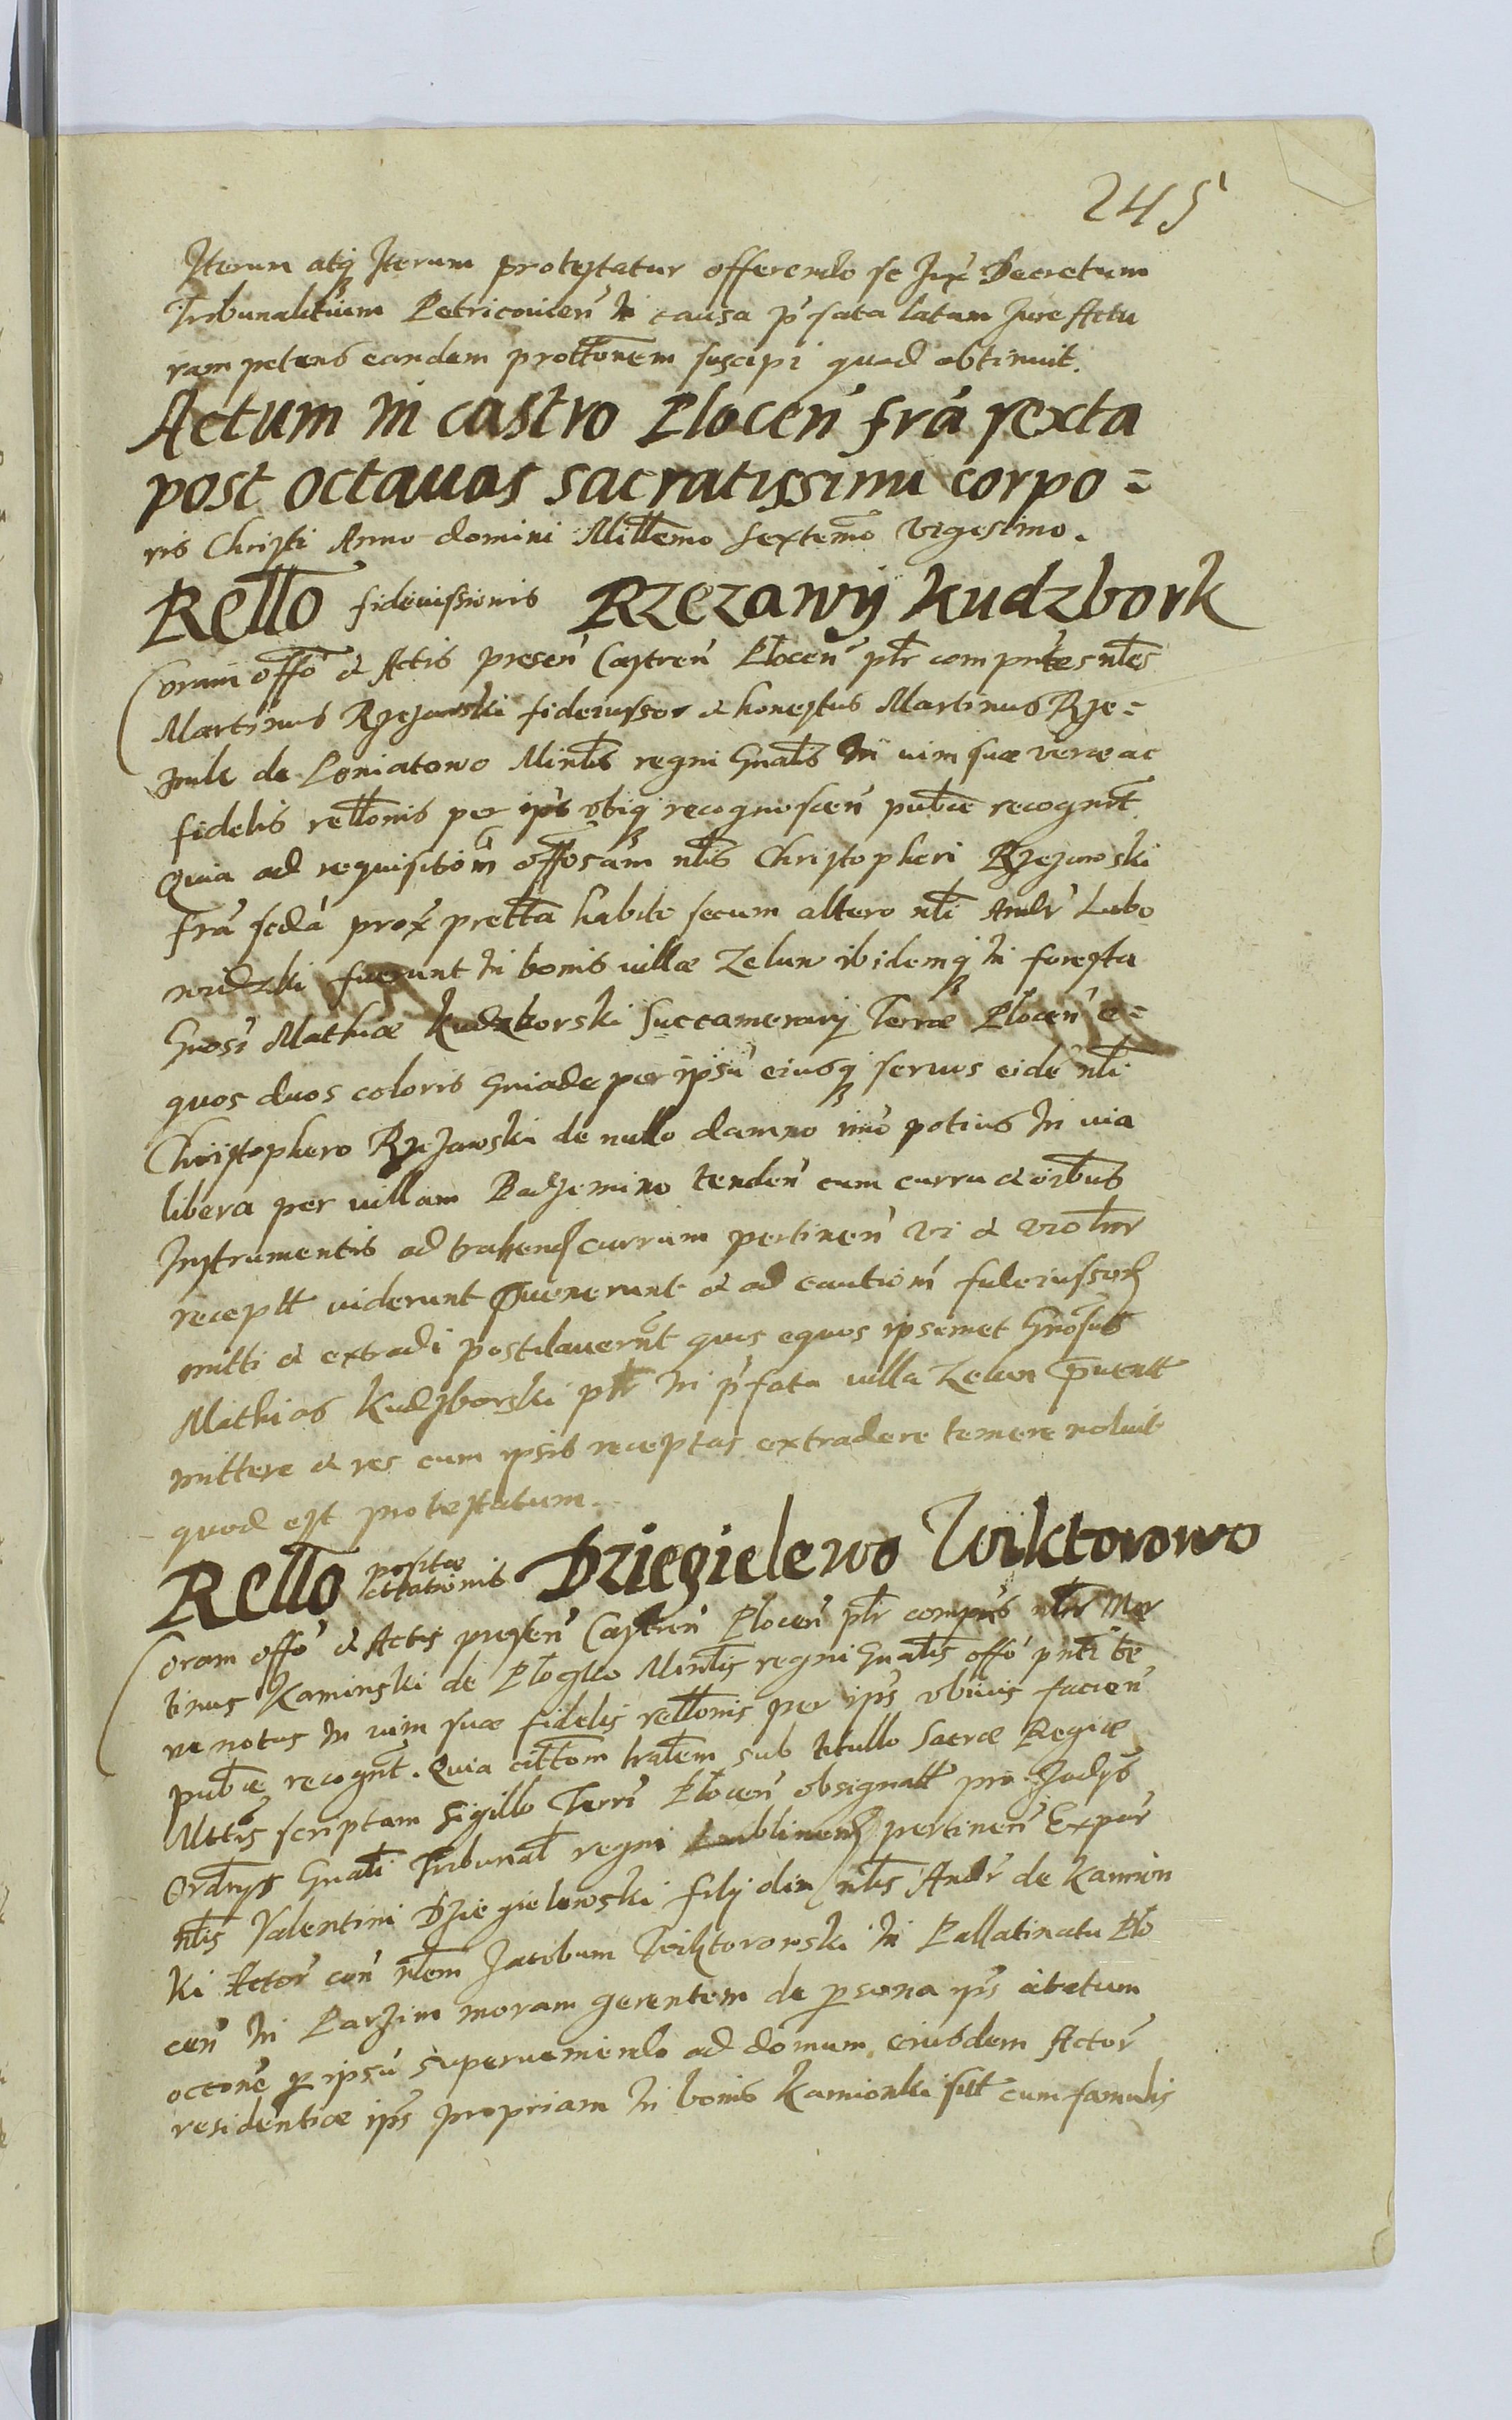 245
Iterum atq Iterum protestatur offerendo se Jux Decretum
Tribunalitium Petricouien In causa pfata latam Jure Actu
ram petens eandem prottonem suscipi quod obtinuit.
Actum in castro Plocen fra sexta
post octauas sacratissimi corpo=
ris Christi Anno domini Millemo Sextemo Vigesimo.
Rello fideiussionis Rzezawy kudzbork
Coram offo & Actis presen Castren Plocen plr comparntes nles
Martinus Rzezawski fideiussor & honestus Martinus Rze=
de Loniatowo Minlis regni Gnalis In uim suæ veræ ac
fidelis rellonis per ips vbiq recognoscen publce recognt
Quia ad requisitiom offosam nlis Christopheri Rzezawski
fra scda prox pretta habiti secum altero nli Andr Lubo
widzki fuerunt In bonis uillæ Zelun ibidemq In foresta
Gnosi Mathiæ Kudzborski Succamerarij Terræ Plocen e=
quos duos coloris Gniade per ipsu eiusq seruos eide nli
Christophero Rzezawski de nullo damno imo potius In uia
libera per uillam Badzemino tenden cum curru & oibus
Instrumentis ad trahend currum pertinen vi & violnr
receptt uiderunt Inuenerunt & ad cautiom fideiussor
mitti & extradi postulauerunt quos equos ipsemet Gnosus
Mathias Kudzborski plr In pfata uilla Zelun Inuentt
mittere & res cum ipsis receptas extradere temere noluit
quod est protestatum.
Rello positæ citationis Dziegielewo Wiktorowo
Coram offo & Actis presen Castren Plocen plr comprns nblis Mar
tinus Kaminski de Plogko Minlis regni Gnalis offo pnti be
ne notus In uim suæ fidelis rellonis per ips obiuis facien
publce recognt. Quia cittom lralem sub titullo Sacræ Regiæ
Mttis scriptam Sigillo Terri Plocen obsignatt pro Judijs
Ordnys Gnali Tribunal regni Lublinen pertinen Expar
nlis Valentini Dziegielewski filij olim nlis Andr de Kamion
ki Actor con nlem Jacobum Wiktorowski In Pallatinatu Plo
cen In Parzim moram gerentem de psona ips citatum
occone p ipsu superueniendo ad domum eiusdem Actor
residentiæ ips propriam In bonis Kamionki sitt cum famulis